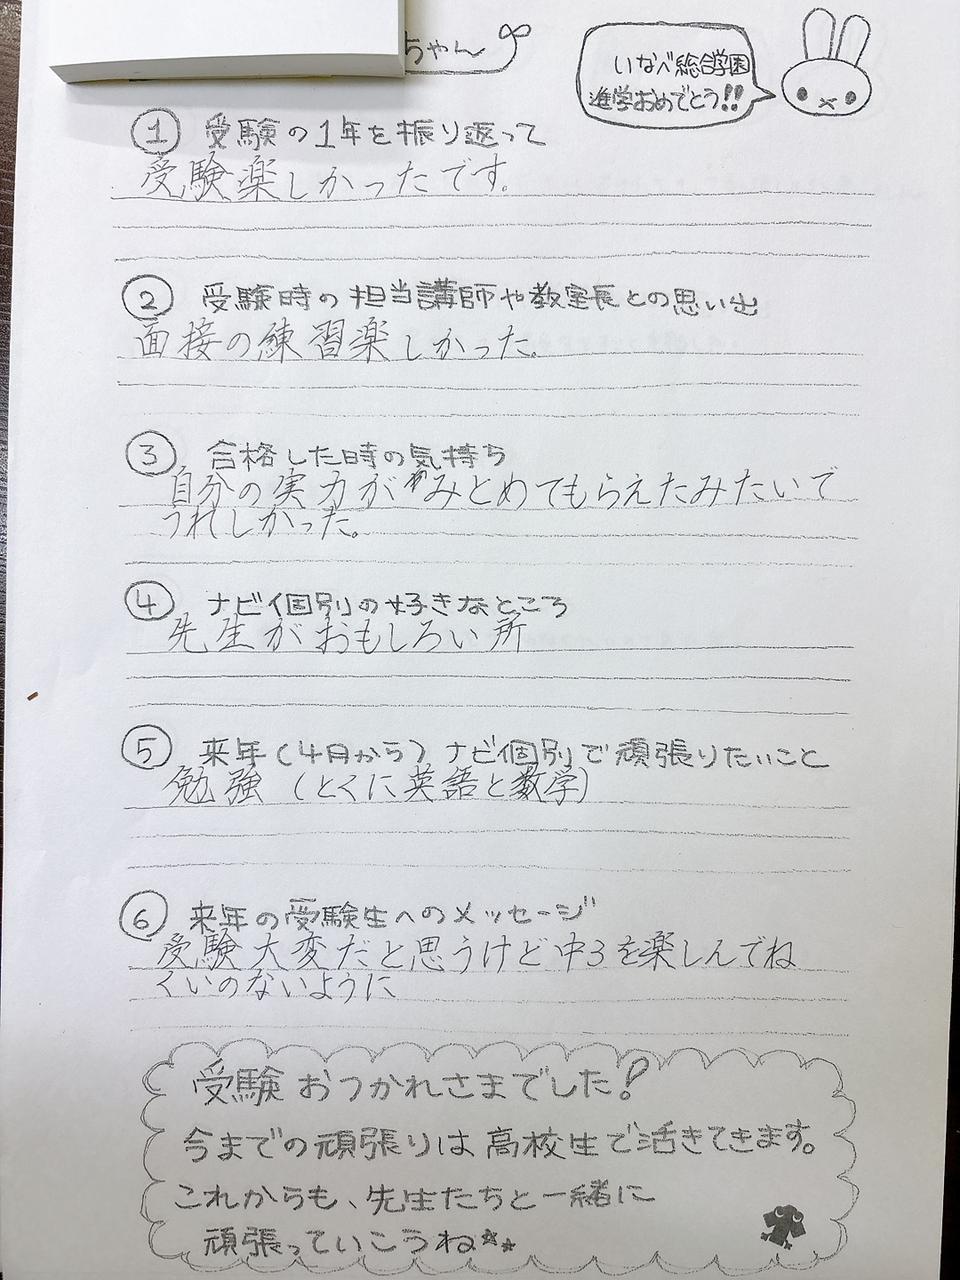 ちゃん
いなべ総合学園
進学おめでとう!!
① 受験の1年を振り返って
受験楽しかったです。
② 受験時の担当講師や教室長との思い出
面接の練習楽しかった。
③ 合格した時の気持ち
自分の実力がみとめてもらえたみたいで
うれしかった。
④ ナビ個別の好きなところ
先生がおもしろい所
⑤ 来年(4月から)ナビ個別で頑張りたいこと
勉強(とくに英語と数学)
⑥ 来年の受験生へのメッセージ
受験大変だと思うけど中3を楽しんでね
くいのないように
受験おつかれさまでした!
今までの頑張りは高校生で活きてきます。
これからも、先生たちと一緒に
頑張っていこうね